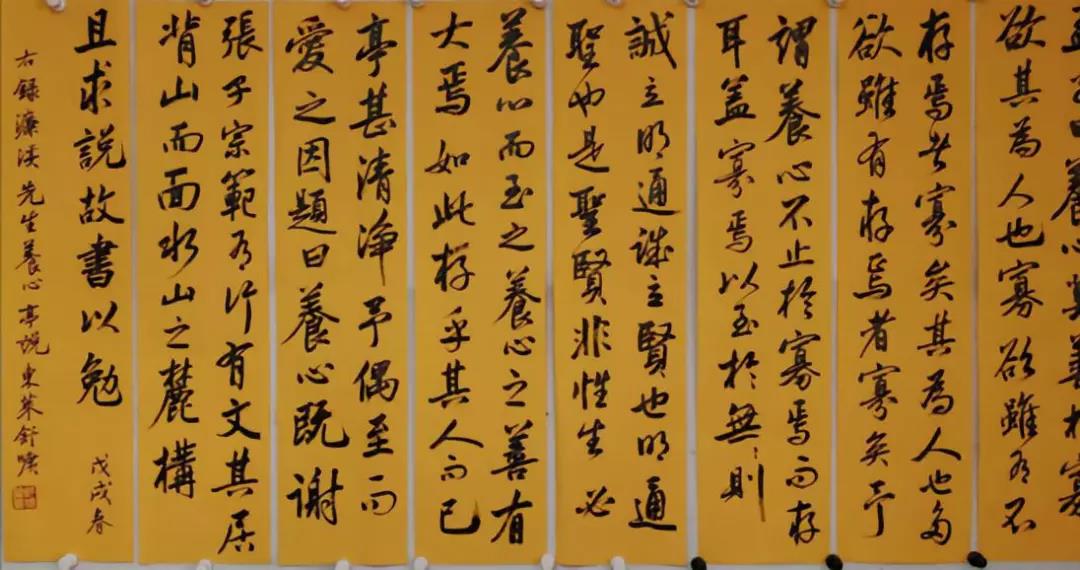 曰養心莫善於寡
欲其為人也寡欲雖有不
存焉者寡矣其為人也多
欲雖有存焉者寡矣予
謂養心不止於寡焉而存
耳蓋寡焉以至於無〻則
誠立明通誠立賢也明通
聖也是聖賢非性生必
養心而至之養心之善有
大焉如此存乎其人而已
亭甚清淨予偶至而
愛之因題曰養心既謝
張子宗範有行有文其居
背山而面水山之麓構
且求說故書以勉
戊戌春
右錄濂溪先生養心亭說東萊舒